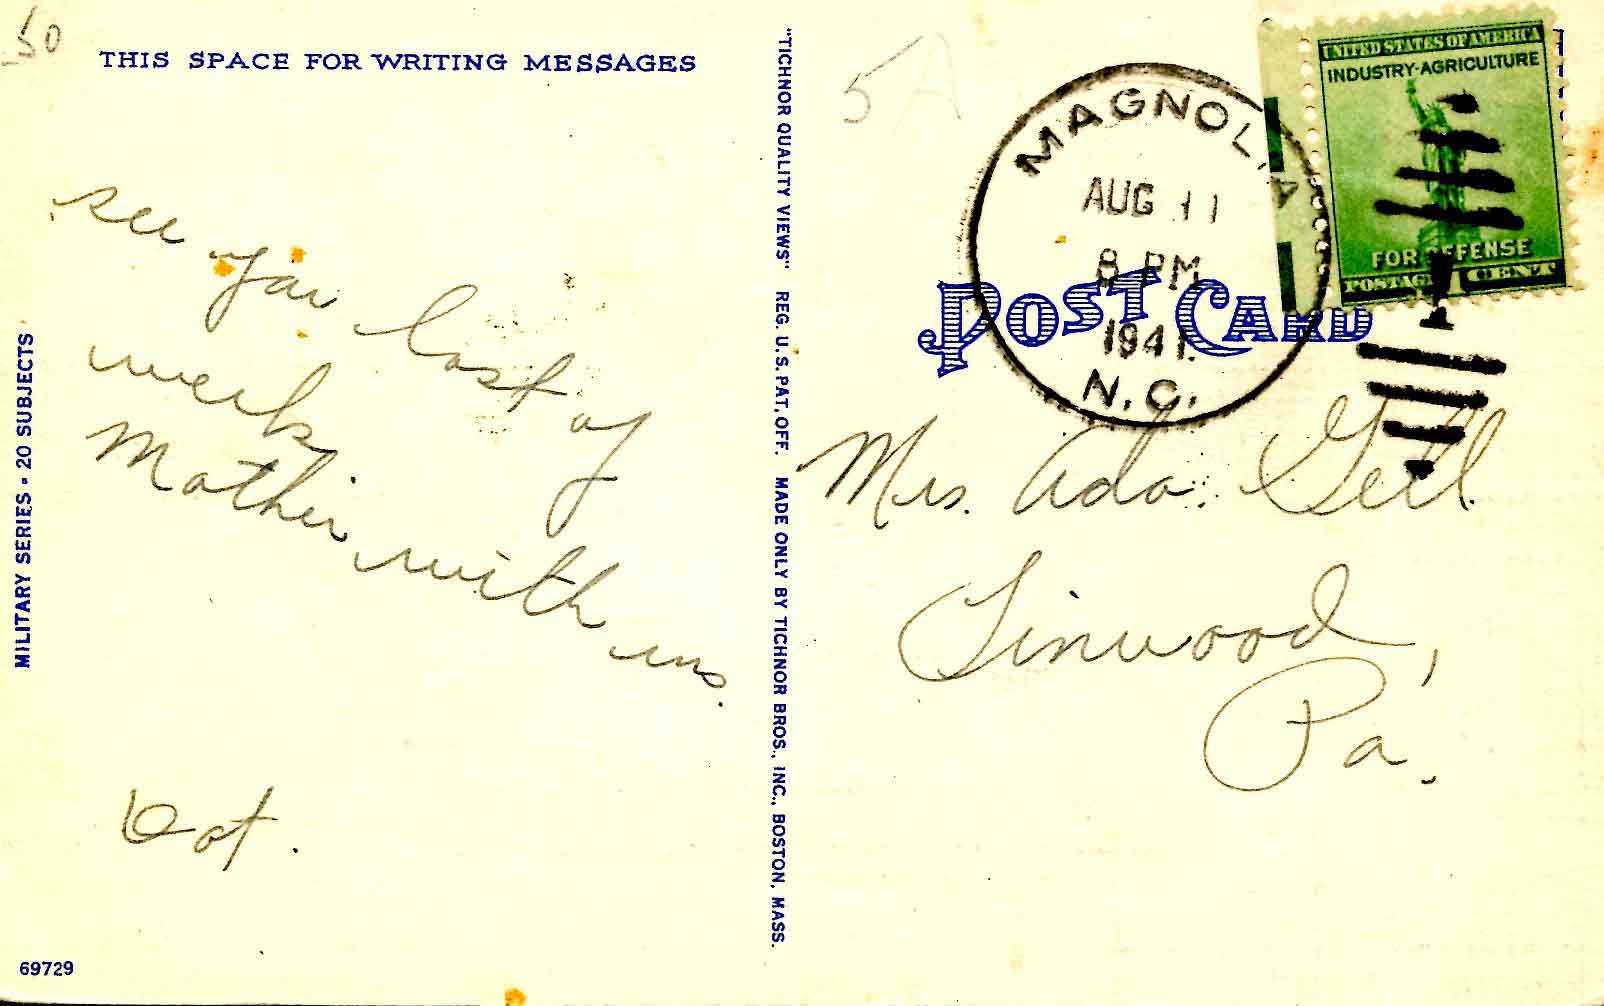 50
THIS SPACE FOR WRITING MESSAGES
see you last of
week
Mother with us.
Dot.
MILITARY SERIES - 20 SUBJECTS
69729
"TICHNOR QUALITY VIEWS" REG. U.S. PAT. OFF. MADE ONLY BY TICHNOR BROS., INC., BOSTON, MASS.
5A
MAGNOLIA
AUG 11
8 PM
1941
N.C.
UNITED STATES OF AMERICA
INDUSTRY-AGRICULTURE
FOR DEFENSE
POSTAGE 1 CENT
POST CARD
Mrs. Ada
Linwood,
Pa.